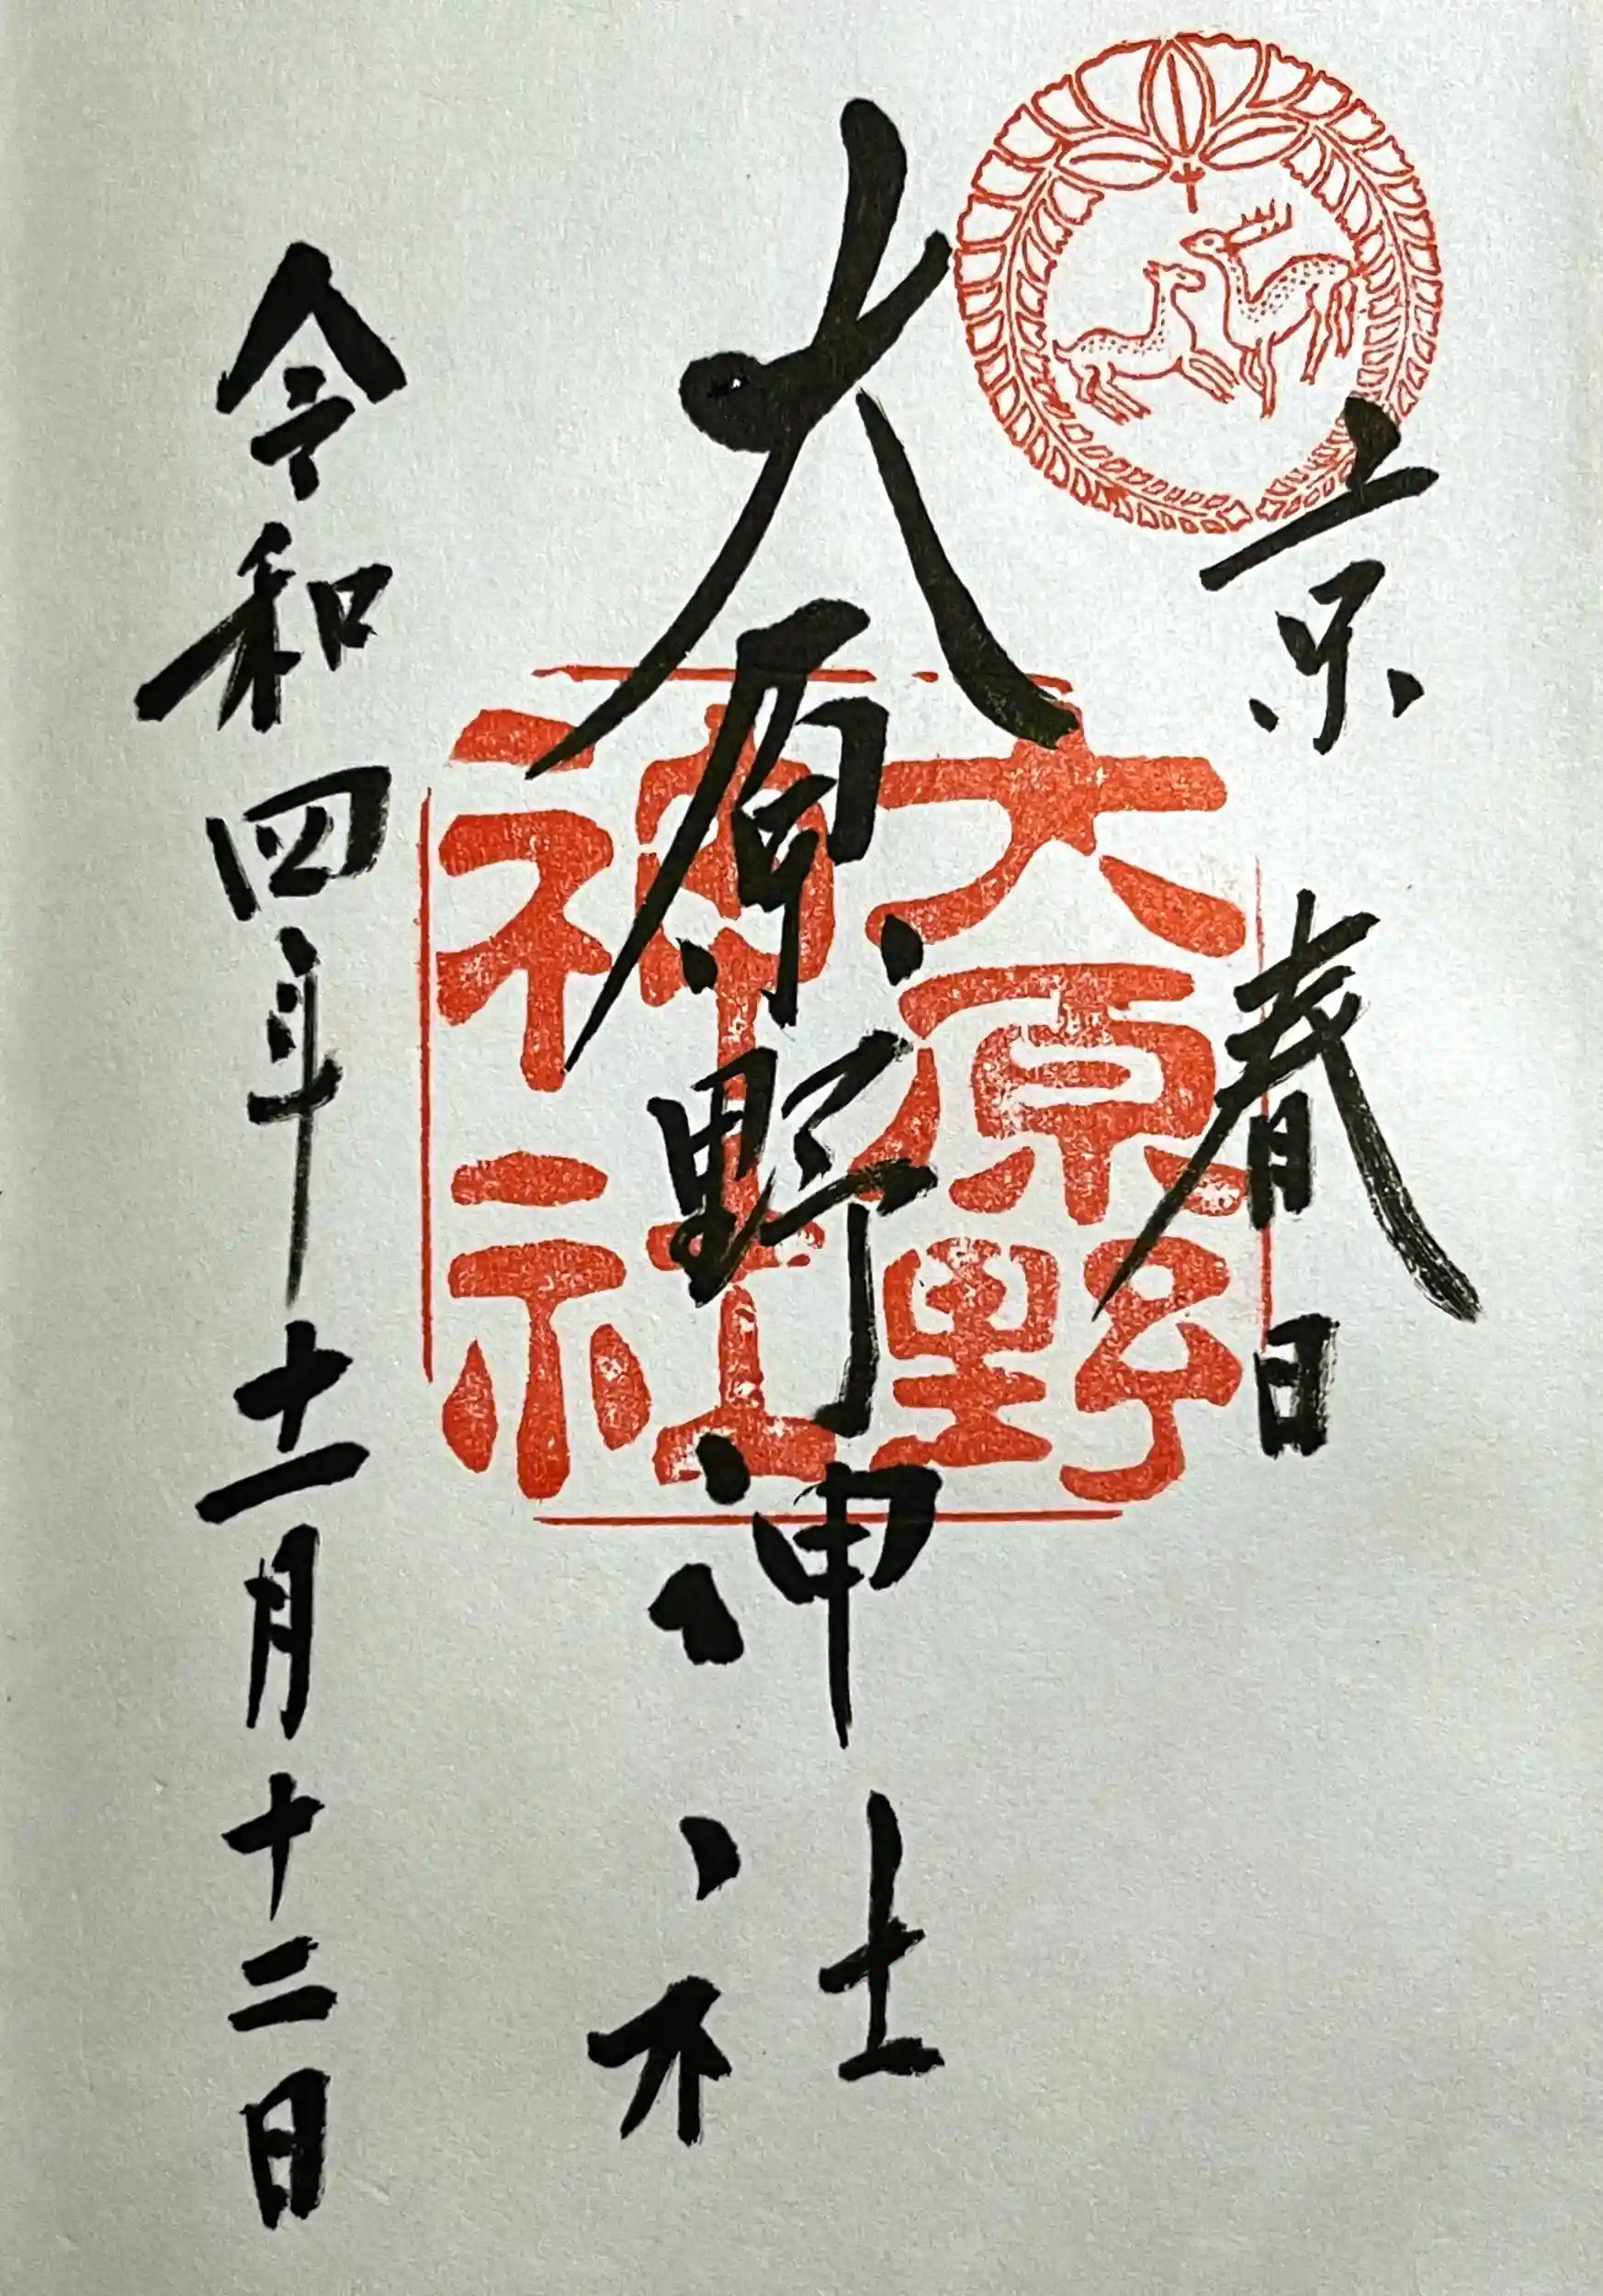 京春日
大原野神社
大原野
神社
令和四年十一月十二日